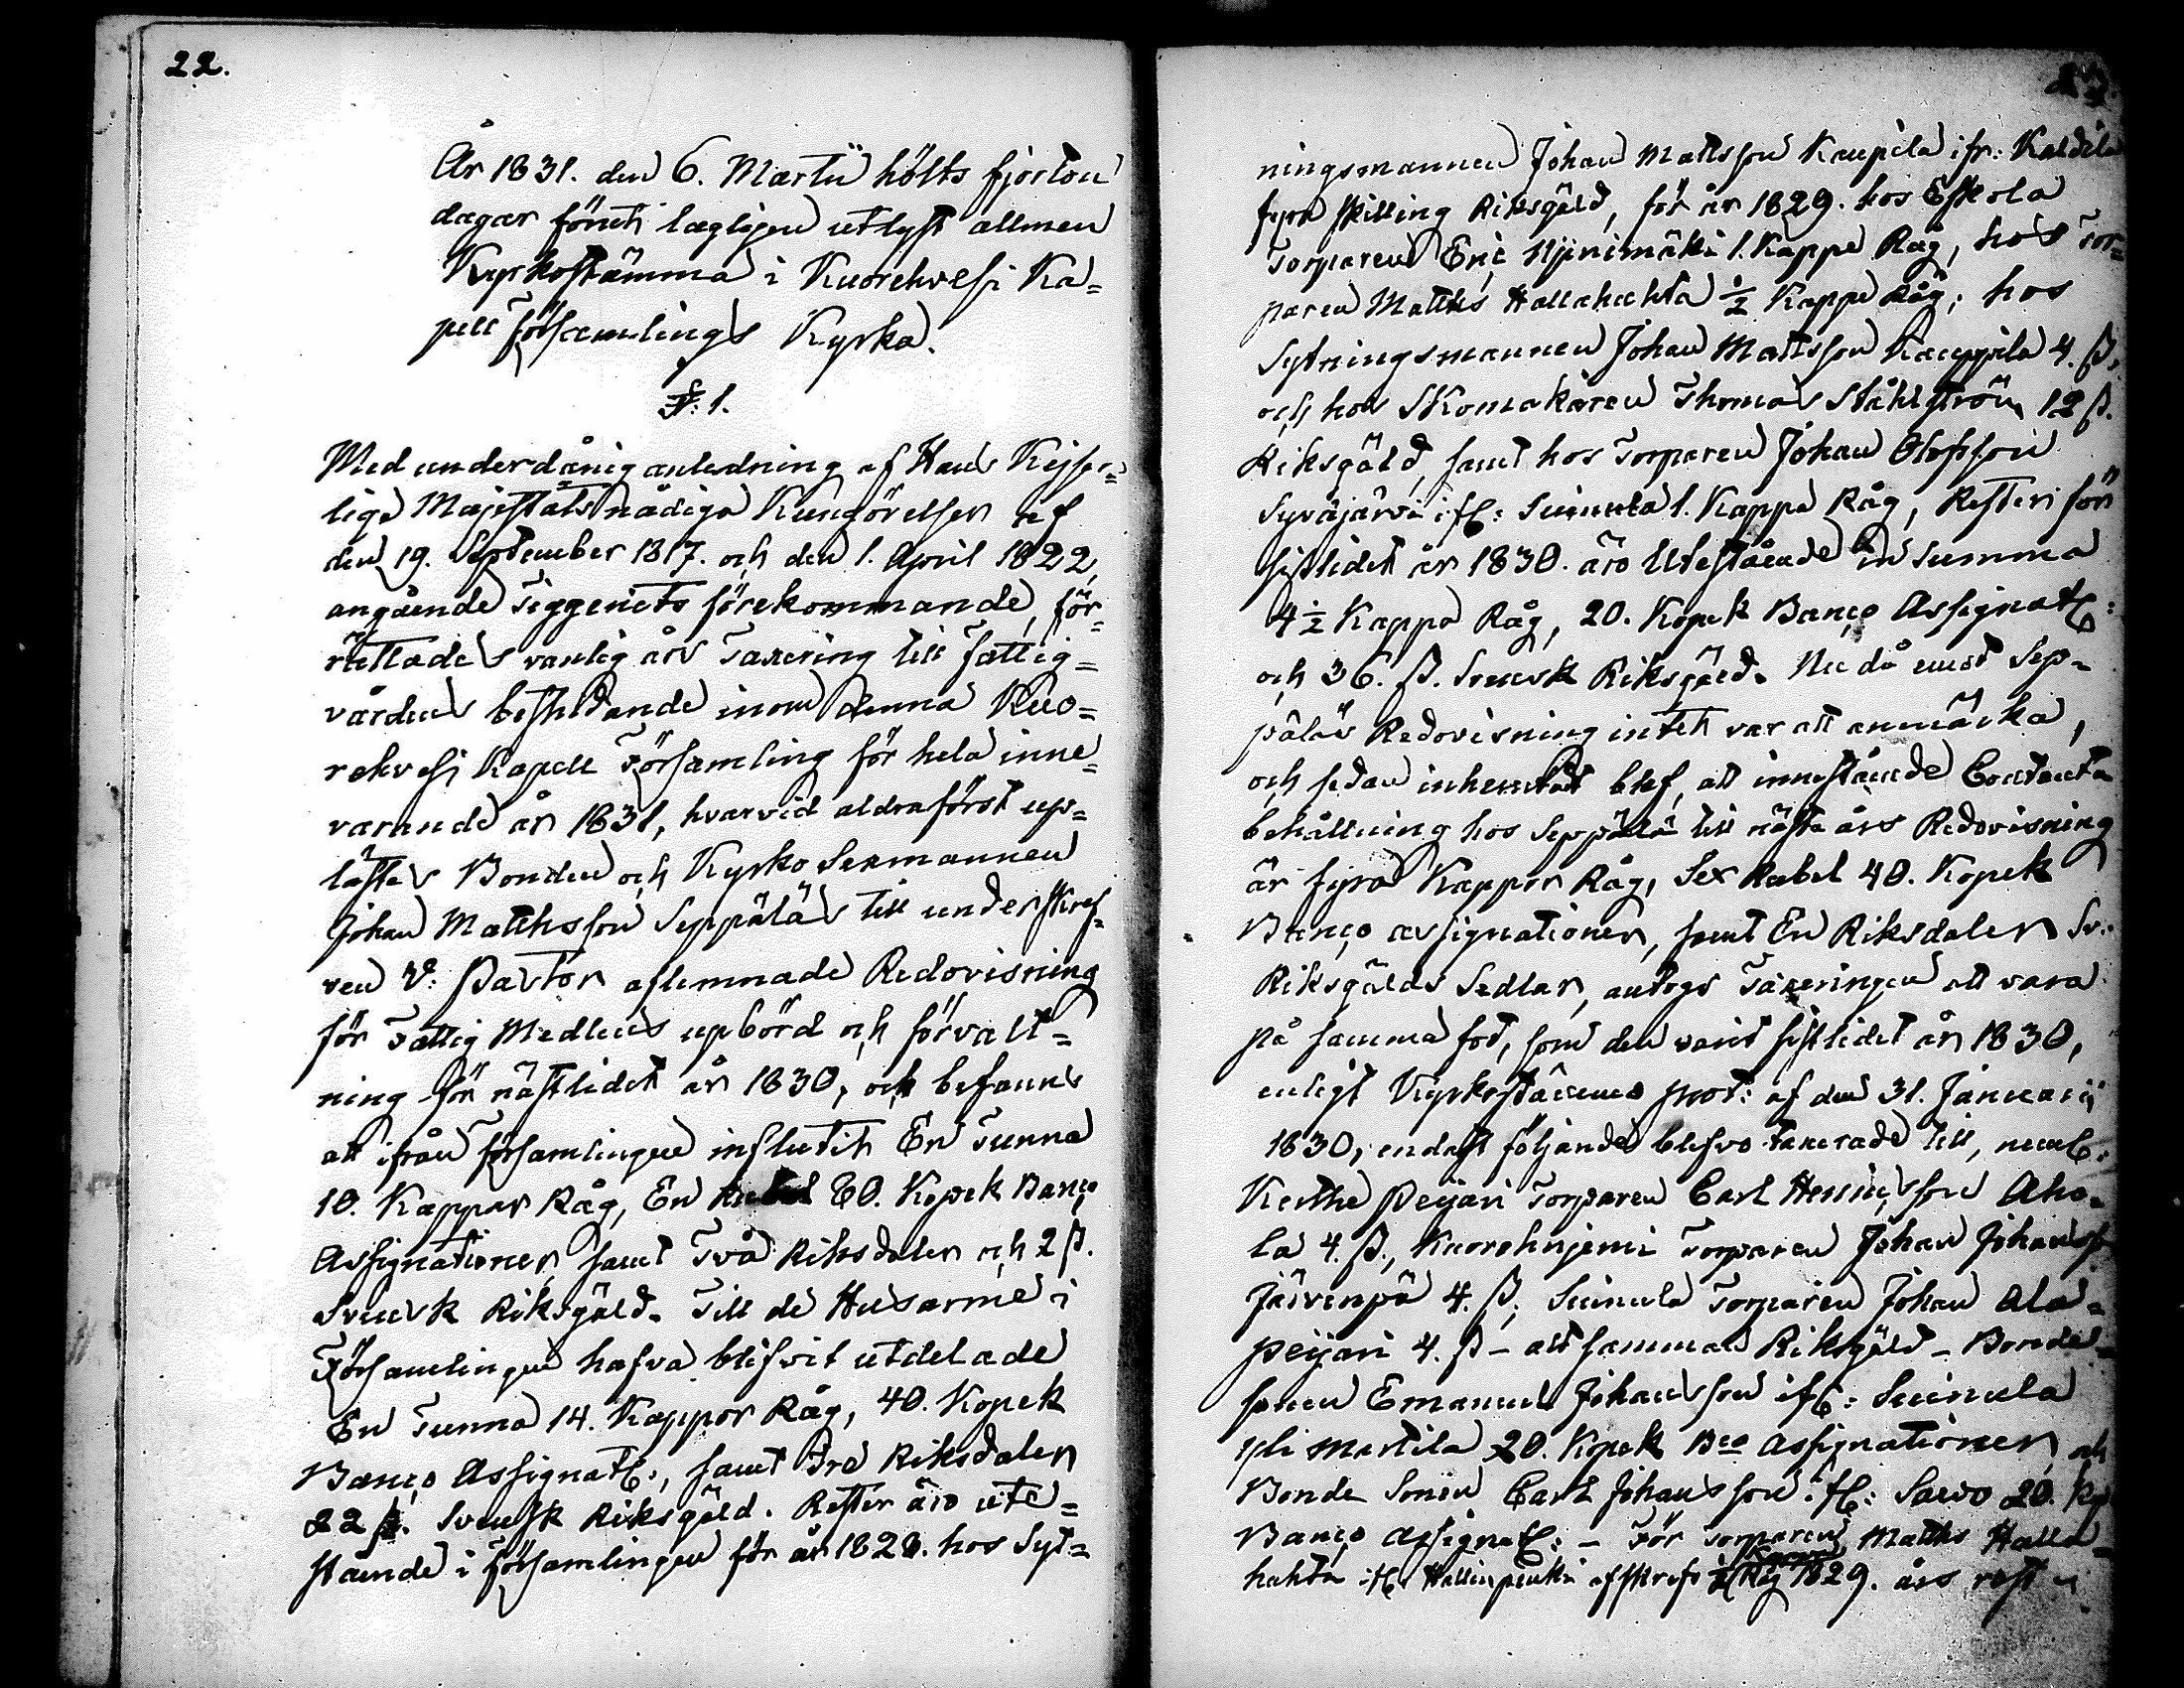 22.
År 1831. den 6. Martii hölts fjorton
dagar förut lagligen utlyst allmen
Kyrkostämma i Kuorehvesi Ka=
pell Församlings Kyrka.
§: 1.
Med underdånig anledning af Hans Kejser=
liga Majestäts nådiga Kungörelser af
den 19. September 1817. och den 1. April 1822,
angående Tiggeriets förekommande, för=
rättades vanlig års Taxering till Fattig=
vårdens bestridande inom denna Kuo=
rehvesi Kapell Församling för hela inne=
varande år 1831, hvarvid aldraförst up=
lästes Bonden och Kyrko Sexmannen
Johan Matthsson Seppäläs till underskref=
ven V: Pastor aflemnade Redovisning
för Fattig Medlens upbörd och förvalt=
ning för nästlidet år 1830, och befanns
att ifrån Församlingen influtit En Tunna
10. Kappar Råg, En Rubel 60. Kopek Banco
Assignationer samt Två Riksdaler och 2 ß.
Svensk Riksgäld. Till de Husarme i
Församlingen hafva blifvit utdelade
En Tunna 14. Kappor Råg, 40. Kopek
Banco Assignat:, samt Tre Riksdaler
22 ß. Svensk Riksgäld. Rester äro ute=
stående i Församlingen för år 1828. hos Syt=
23.
ningsmannen Johan Mattsson Kaupila ifr: Kaldila
fyra Skilling Riksgäld, för år 1829. hos Eskola
Torparen Eric Nynimäki 1. Kappe Råg, hos Tor=
paren Matths Hallahuhta ½ Kappe Råg; hos
Sytningsmannen Johan Mattsson Kauppila 4. ß,
och hos Skomakaren Thomas Ståhlström 12 ß.
Riksgäld, samt hos Torparen Johan Olofsson
Syväjärvi if: Suinula 1. Kappa Råg, Rester för
sistlidet år 1830. äro Utestående in Summa
4 ½ Kappa Råg, 20. Kopek Banco Assignat:
och 36. ß. Svensk Riksgäld. Nu då emot Sep=
päläs Redovisning intet var att anmärka,
och sedan inhemtadt blef, att innestående Contanta
behållning hos Seppälä till nästa års Redovisning
är fyra Kappor Råg, Sex Rubel 40. Kopek
Banco assignationer, samt En Riksdaler Sv:
Riksgälds Sedlar, antogs Taxeringen att vara
på samma fot, som den varit sistlidet år 1830,
enligt Kyrkostämmo prot: af den 31. Januarii
1830, endast följande blefvo taxerade till, neml:
Kerthe Peijari Torparen Carl Henricsson Aho=
la 4. ß., Kuorehniemi Torparen Johan Johanss
Järvenpä 4. ß, Suinula Torparen Johan Ala=
peijari 4. ß – allt sammans Riksgäld – Bonde
sonen Emanuel Johansson if: Suinula
Yli Martila 20. Kopek Bco Assignationer, och
Bonde Sonen Carl Johansson if: Savo 20. Kop
Banco Assignat: – För Torparen Matths Halla=
huhta if: Hallinpenki afskrefs ½ Kappe Råg 1829. års rest